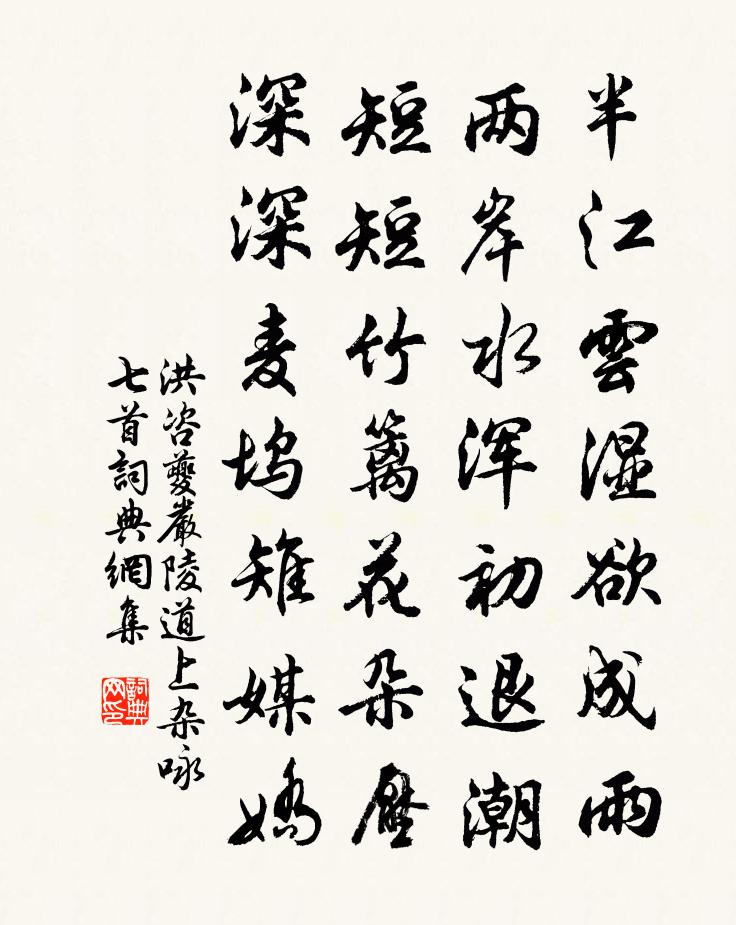 半江雲湿欲成雨
两岸水浑初退潮
短短竹篱花朵壓
深深麦坞雉媒嬌
洪咨夔嚴陵道上杂咏
七首詞典網集
詞典
网印